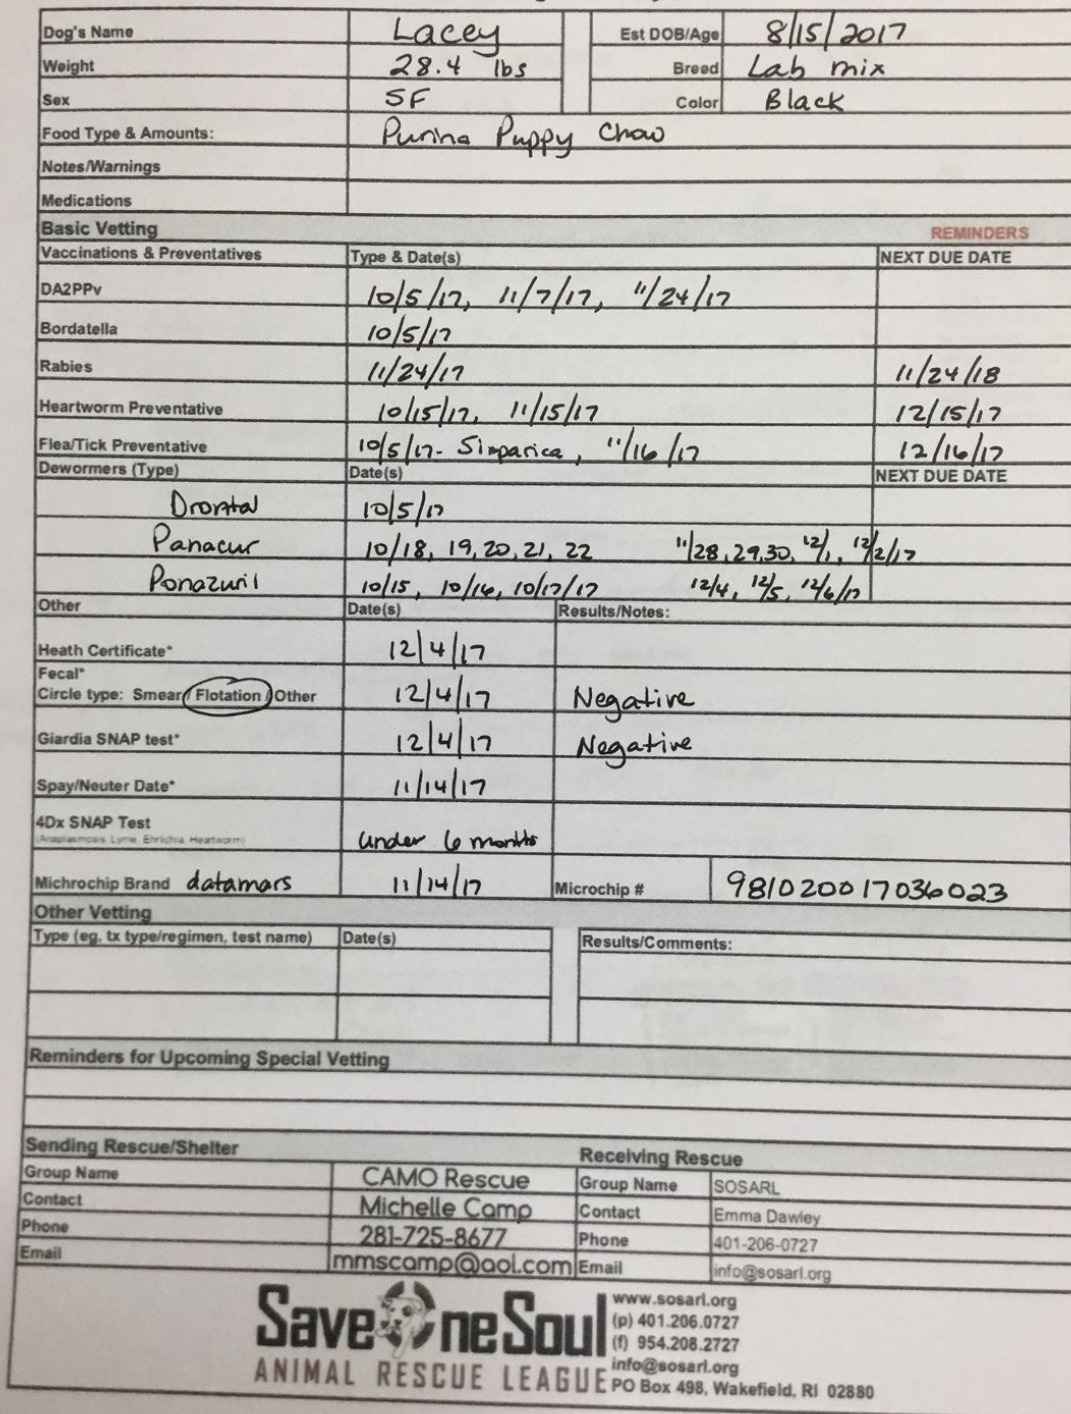 Dog's Name Lacey Est DOB/Age 8/15/2017
Weight 28.4 lbs Breed Lab mix
Sex SF Color Black
Food Type & Amounts: Purina Puppy Chow
Notes/Warnings
Medications
Basic Vetting REMINDERS
Vaccinations & Preventatives Type & Date(s) NEXT DUE DATE
DA2PPv 10/5/17, 11/7/17, 11/24/17
Bordatella 10/5/17
Rabies 11/24/17 11/24/18
Heartworm Preventative 10/15/17, 11/15/17 12/15/17
Flea/Tick Preventative 10/5/17- Simparica, 11/16/17 12/16/17
Dewormers (Type) Date(s) NEXT DUE DATE
Drontal 10/5/17
Panacur 10/18, 19, 20, 21, 22 11/28, 29, 30, 12/1, 12/2/17
Ponazuril 10/15, 10/16, 10/17/17 12/4, 12/5, 12/6/17
Other Date(s) Results/Notes:
Heath Certificate* 12/4/17
Fecal*
Circle type: Smear / Flotation / Other 12/4/17 Negative
Giardia SNAP test* 12/4/17 Negative
Spay/Neuter Date* 11/14/17
4Dx SNAP Test under 6 months
(Anaplasmosis, Lyme, Ehrlichia, Heartworm)
Michrochip Brand datamars 11/14/17 Microchip # 981020017036023
Other Vetting
Type (eg, tx type/regimen, test name) Date(s) Results/Comments:
Reminders for Upcoming Special Vetting
Sending Rescue/Shelter Receiving Rescue
Group Name CAMO Rescue Group Name SOSARL
Contact Michelle Camp Contact Emma Dawley
Phone 281-725-8677 Phone 401-206-0727
Email mmscamp@aol.com Email info@sosarl.org
Save One Soul
ANIMAL RESCUE LEAGUE
www.sosarl.org
(p) 401.206.0727
(f) 954.208.2727
info@sosarl.org
PO Box 498, Wakefield, RI 02880